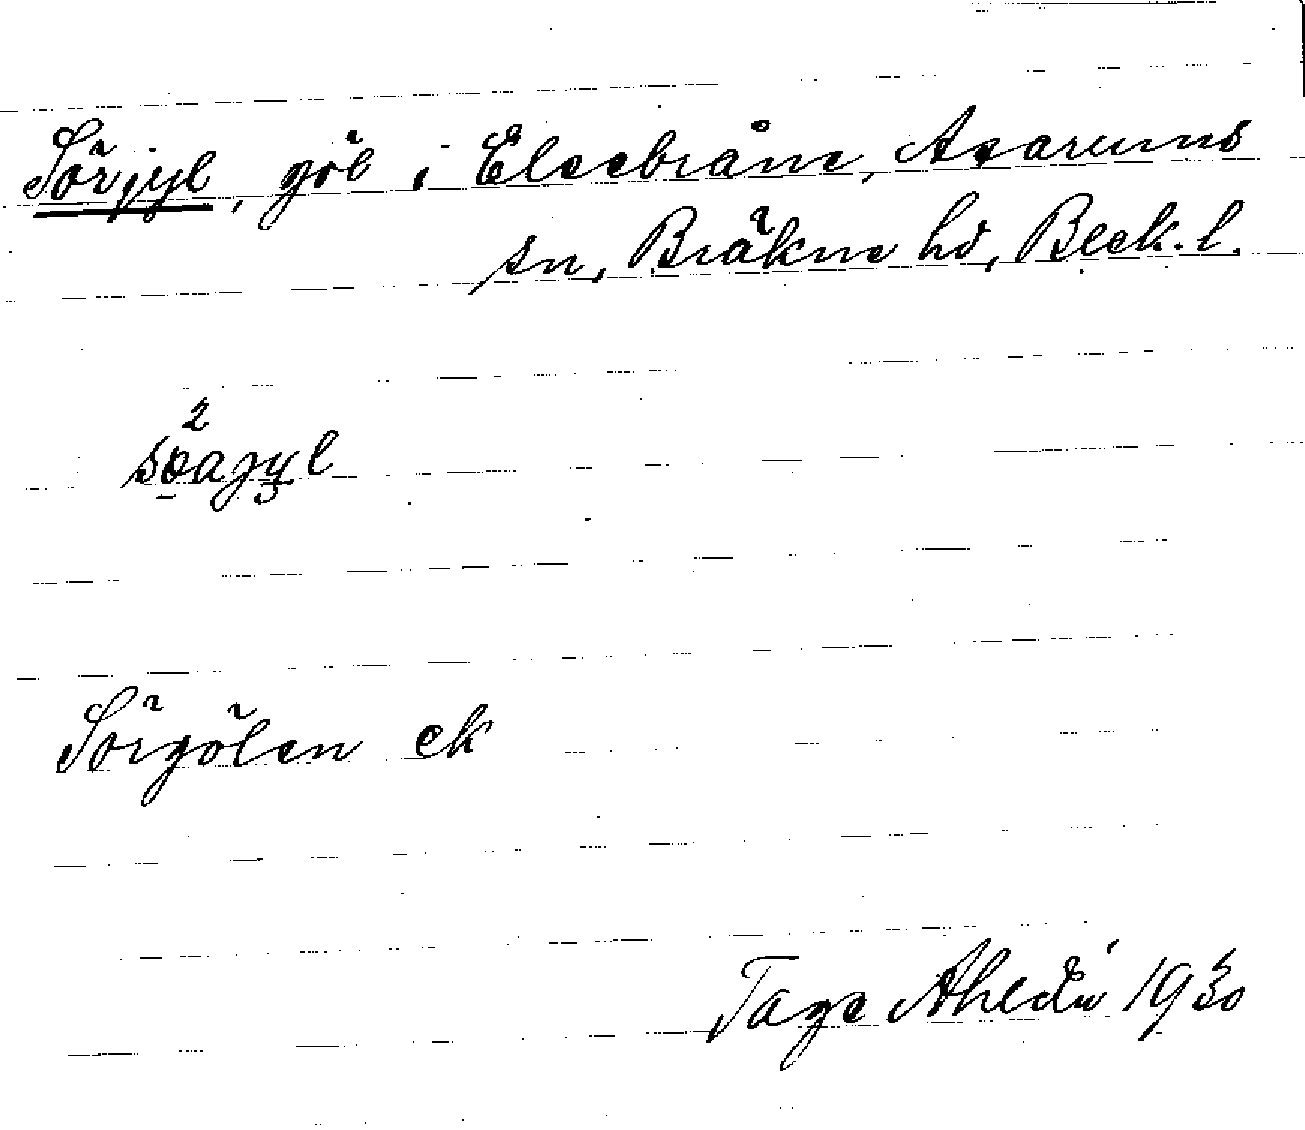 Sörjyl, göl i Elsebråne, Asarums
sn, Bräkne hd, Blek. l.
2
söajyl
Sörgölen ek
Tage Ahldén 1930